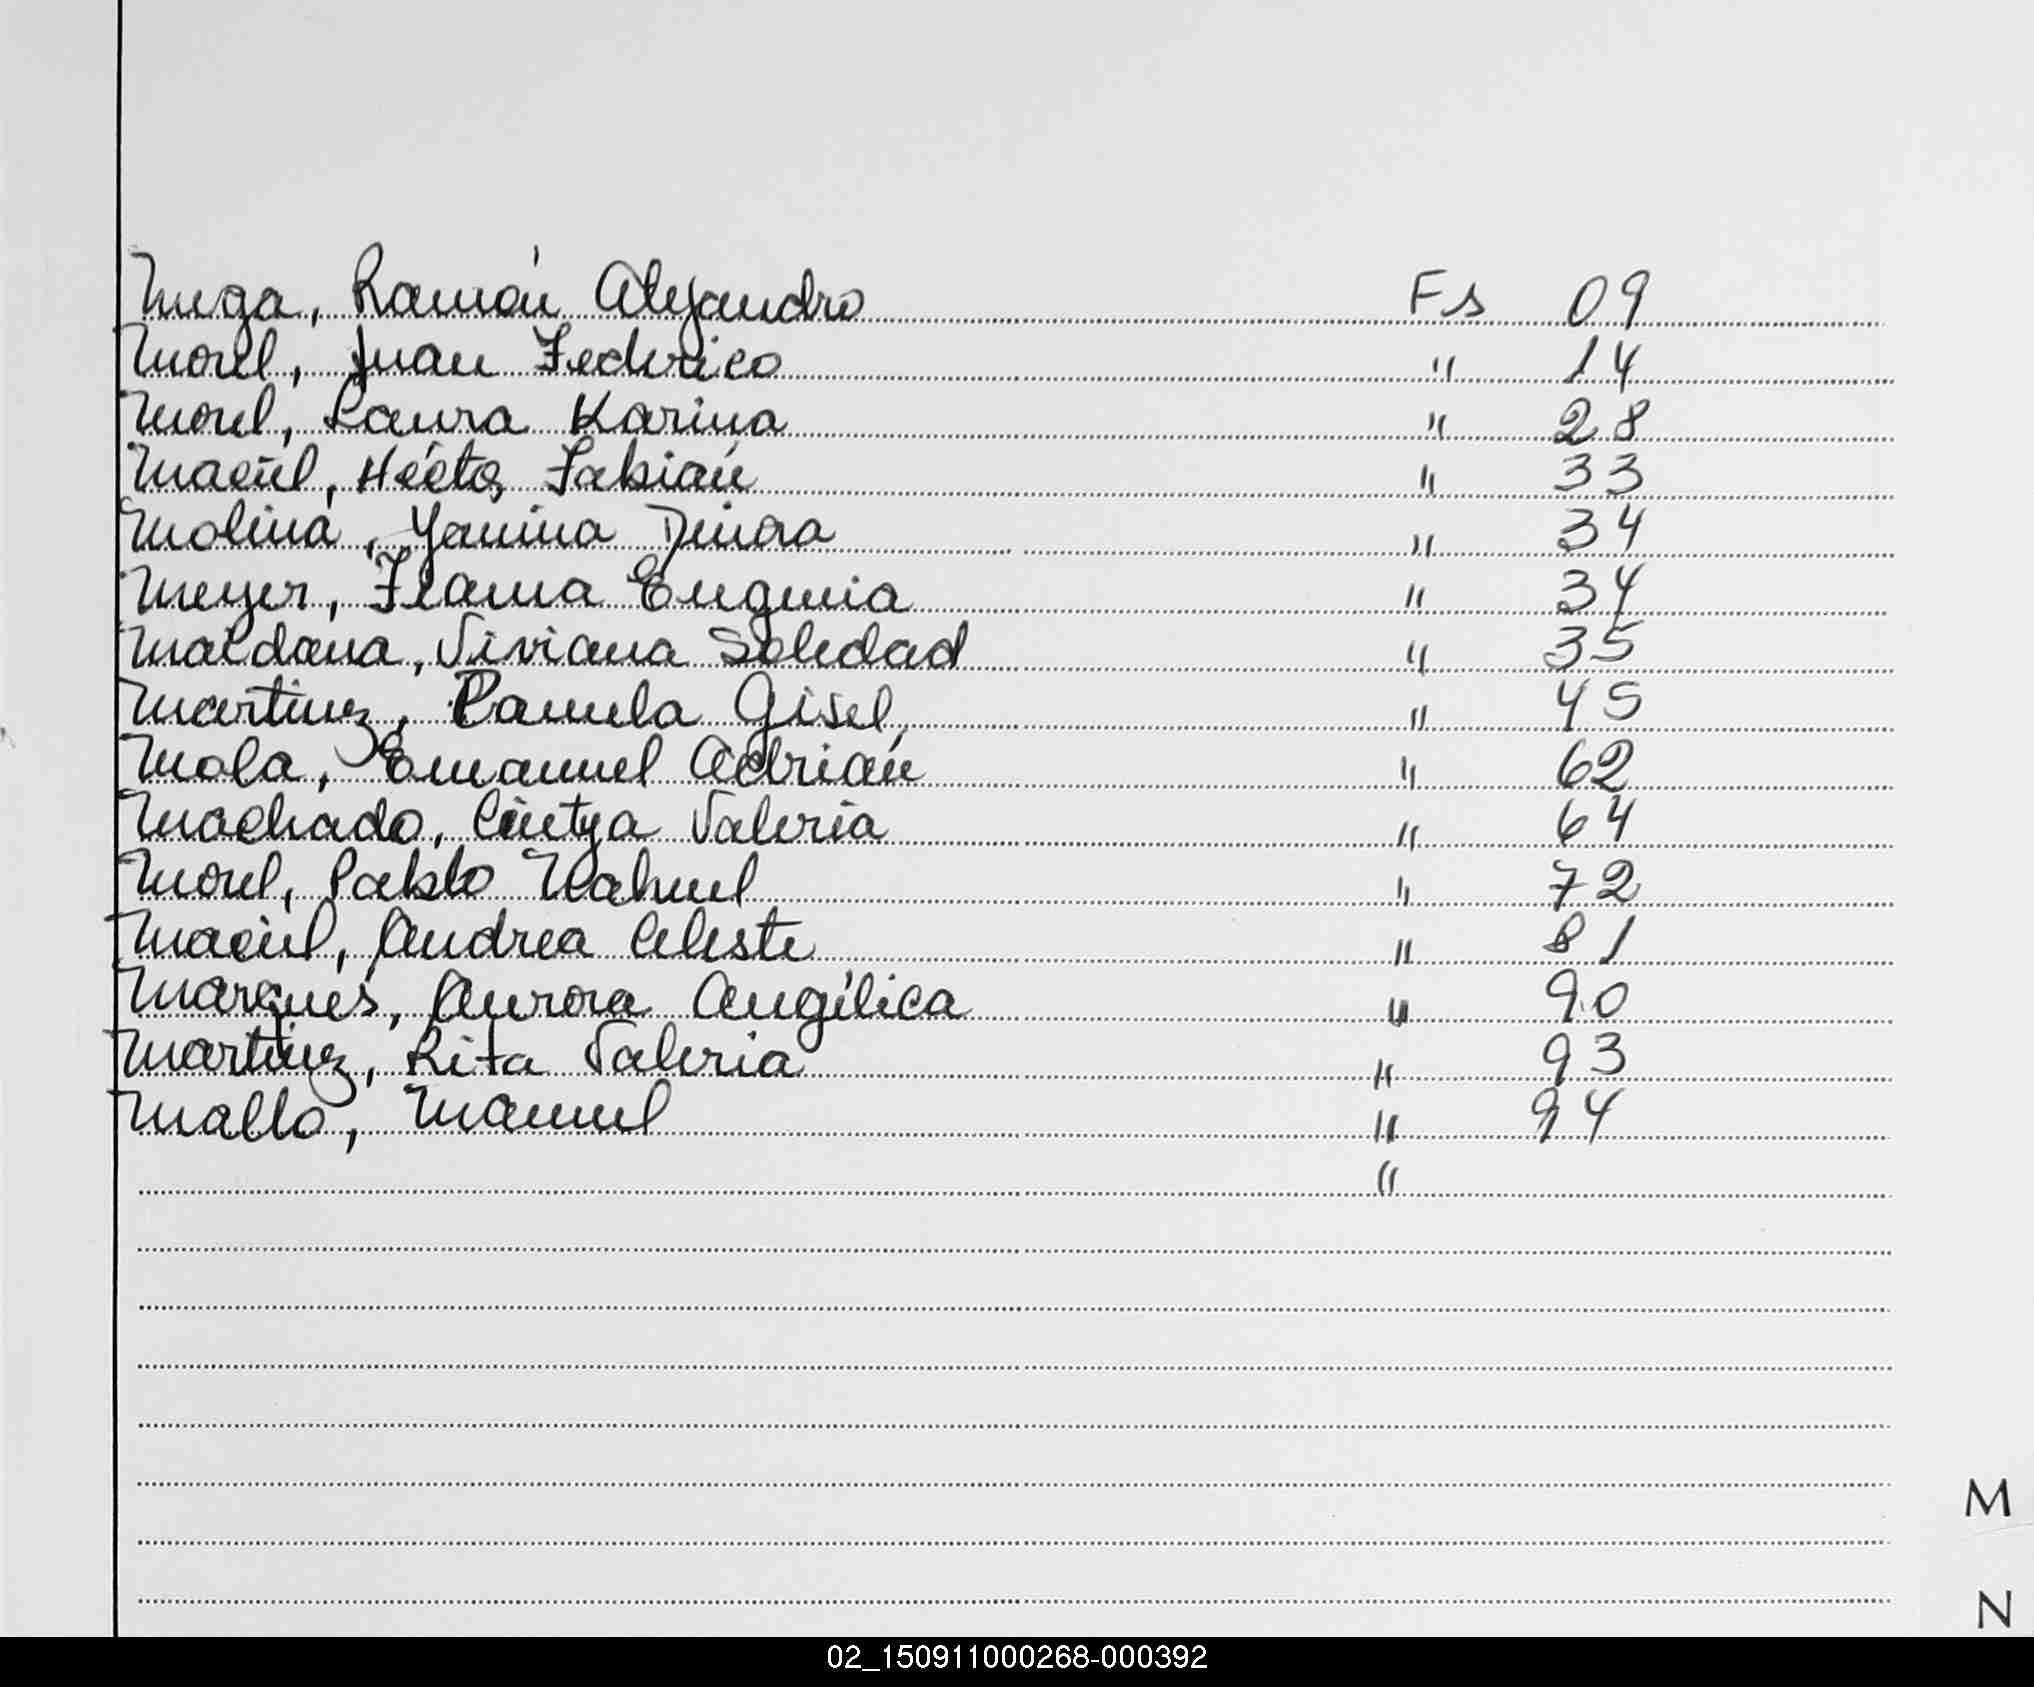 Muga, Ramón Alejandro Fs 09
Morel, Juan Federico " 14
Morel, Laura Karina " 28
Maciel, Héctor Fabián " 33
Molina, Yanina Dinora " 34
Meyer, Eugenia " 34
Maidana, Viviana Soledad " 35
Martinez, Pamela Gisel " 45
Mola, Emanuel Adrián " 62
Machado, Cintya Valeria " 64
Morel, Pablo Nahuel " 72
Maciel, Andrea Celeste " 81
Marqués, Aurora Angélica " 90
Martinez, Rita Valeria " 93
Mallo, Manuel " 94
"
M
N
02_150911000268-000392